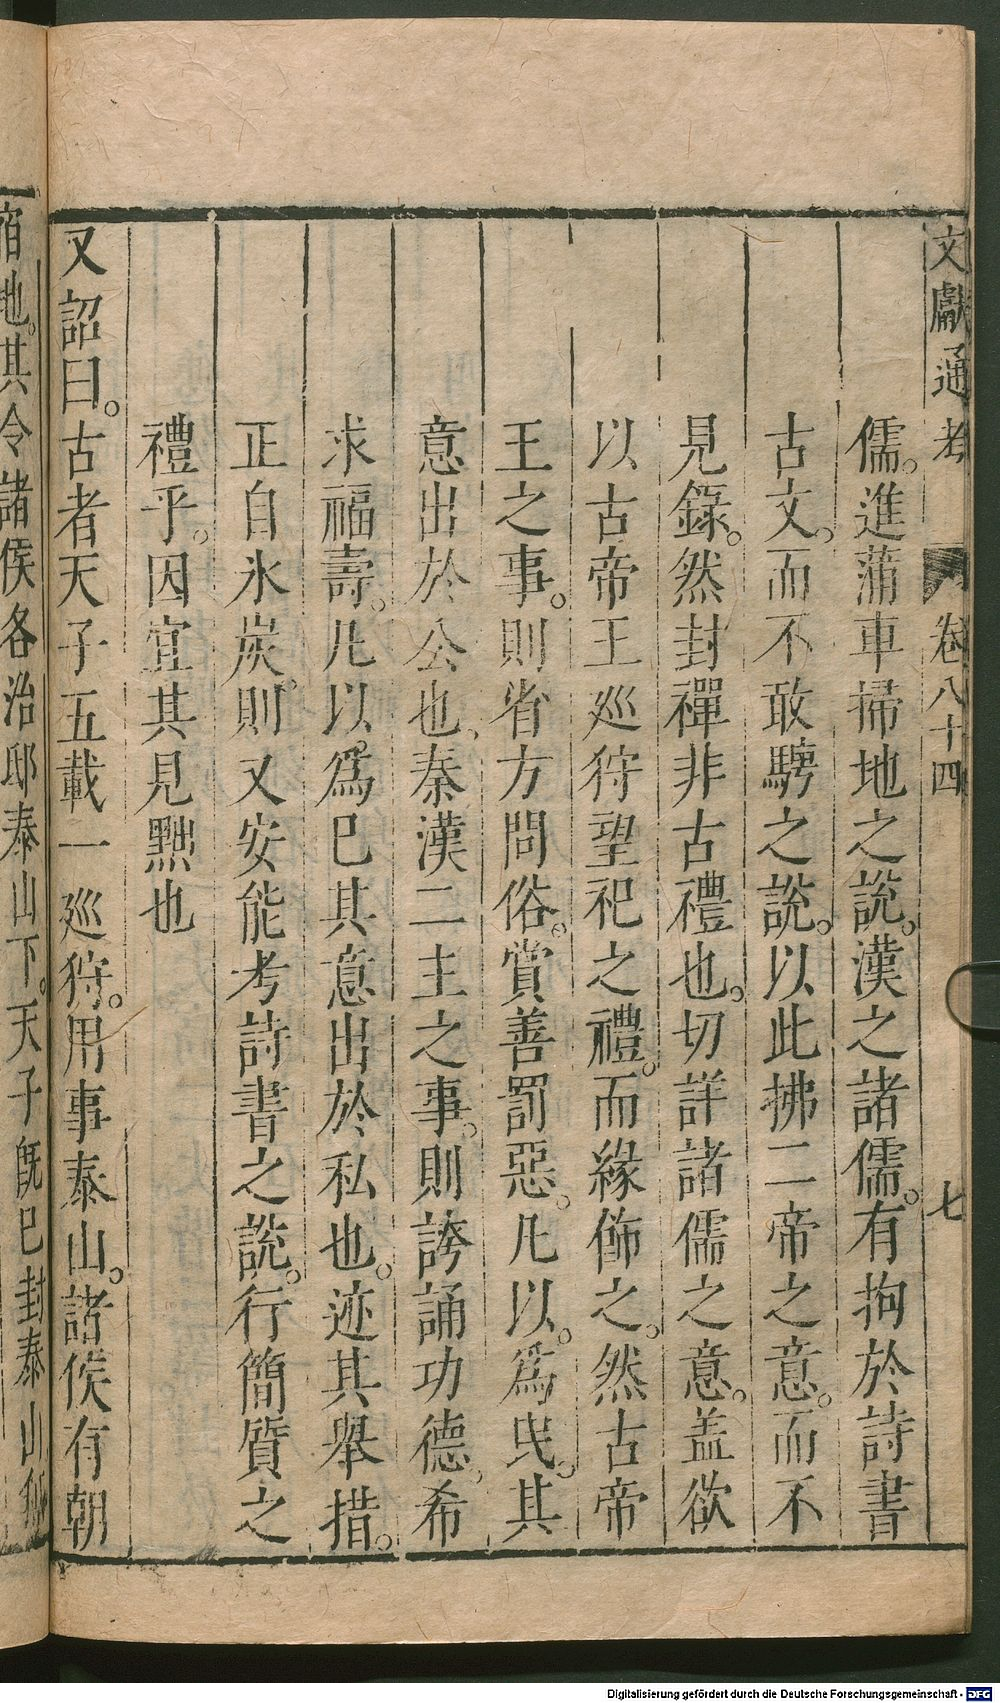 文獻通考 卷八十四 七
儒。進蒲車掃地之説。漢之諸儒。有拘於詩書
古文。而不敢騁之説。以此拂二帝之意。而不
見錄。然封禪非古禮也。切詳諸儒之意。盖欲
以古帝王巡狩望祀之禮。而緣飾之。然古帝
王之事。則省方問俗。賞善罰惡。凡以。爲民。其
意出於公也、秦漢二主之事。則誇誦功德。希
求福壽。凡以爲已其意出於私也。迹其舉措。
正自氷炭。則又安能考詩書之説。行簡質之
禮乎。因宜其見黜也
又詔曰。古者天子五載一巡狩。用事泰山。諸侯有朝
宿地。其令諸侯各治邸泰山下。天子旣巳封泰山
Digitalisierung gefördert durch die Deutsche Forschungsgemeinschaft - DFG